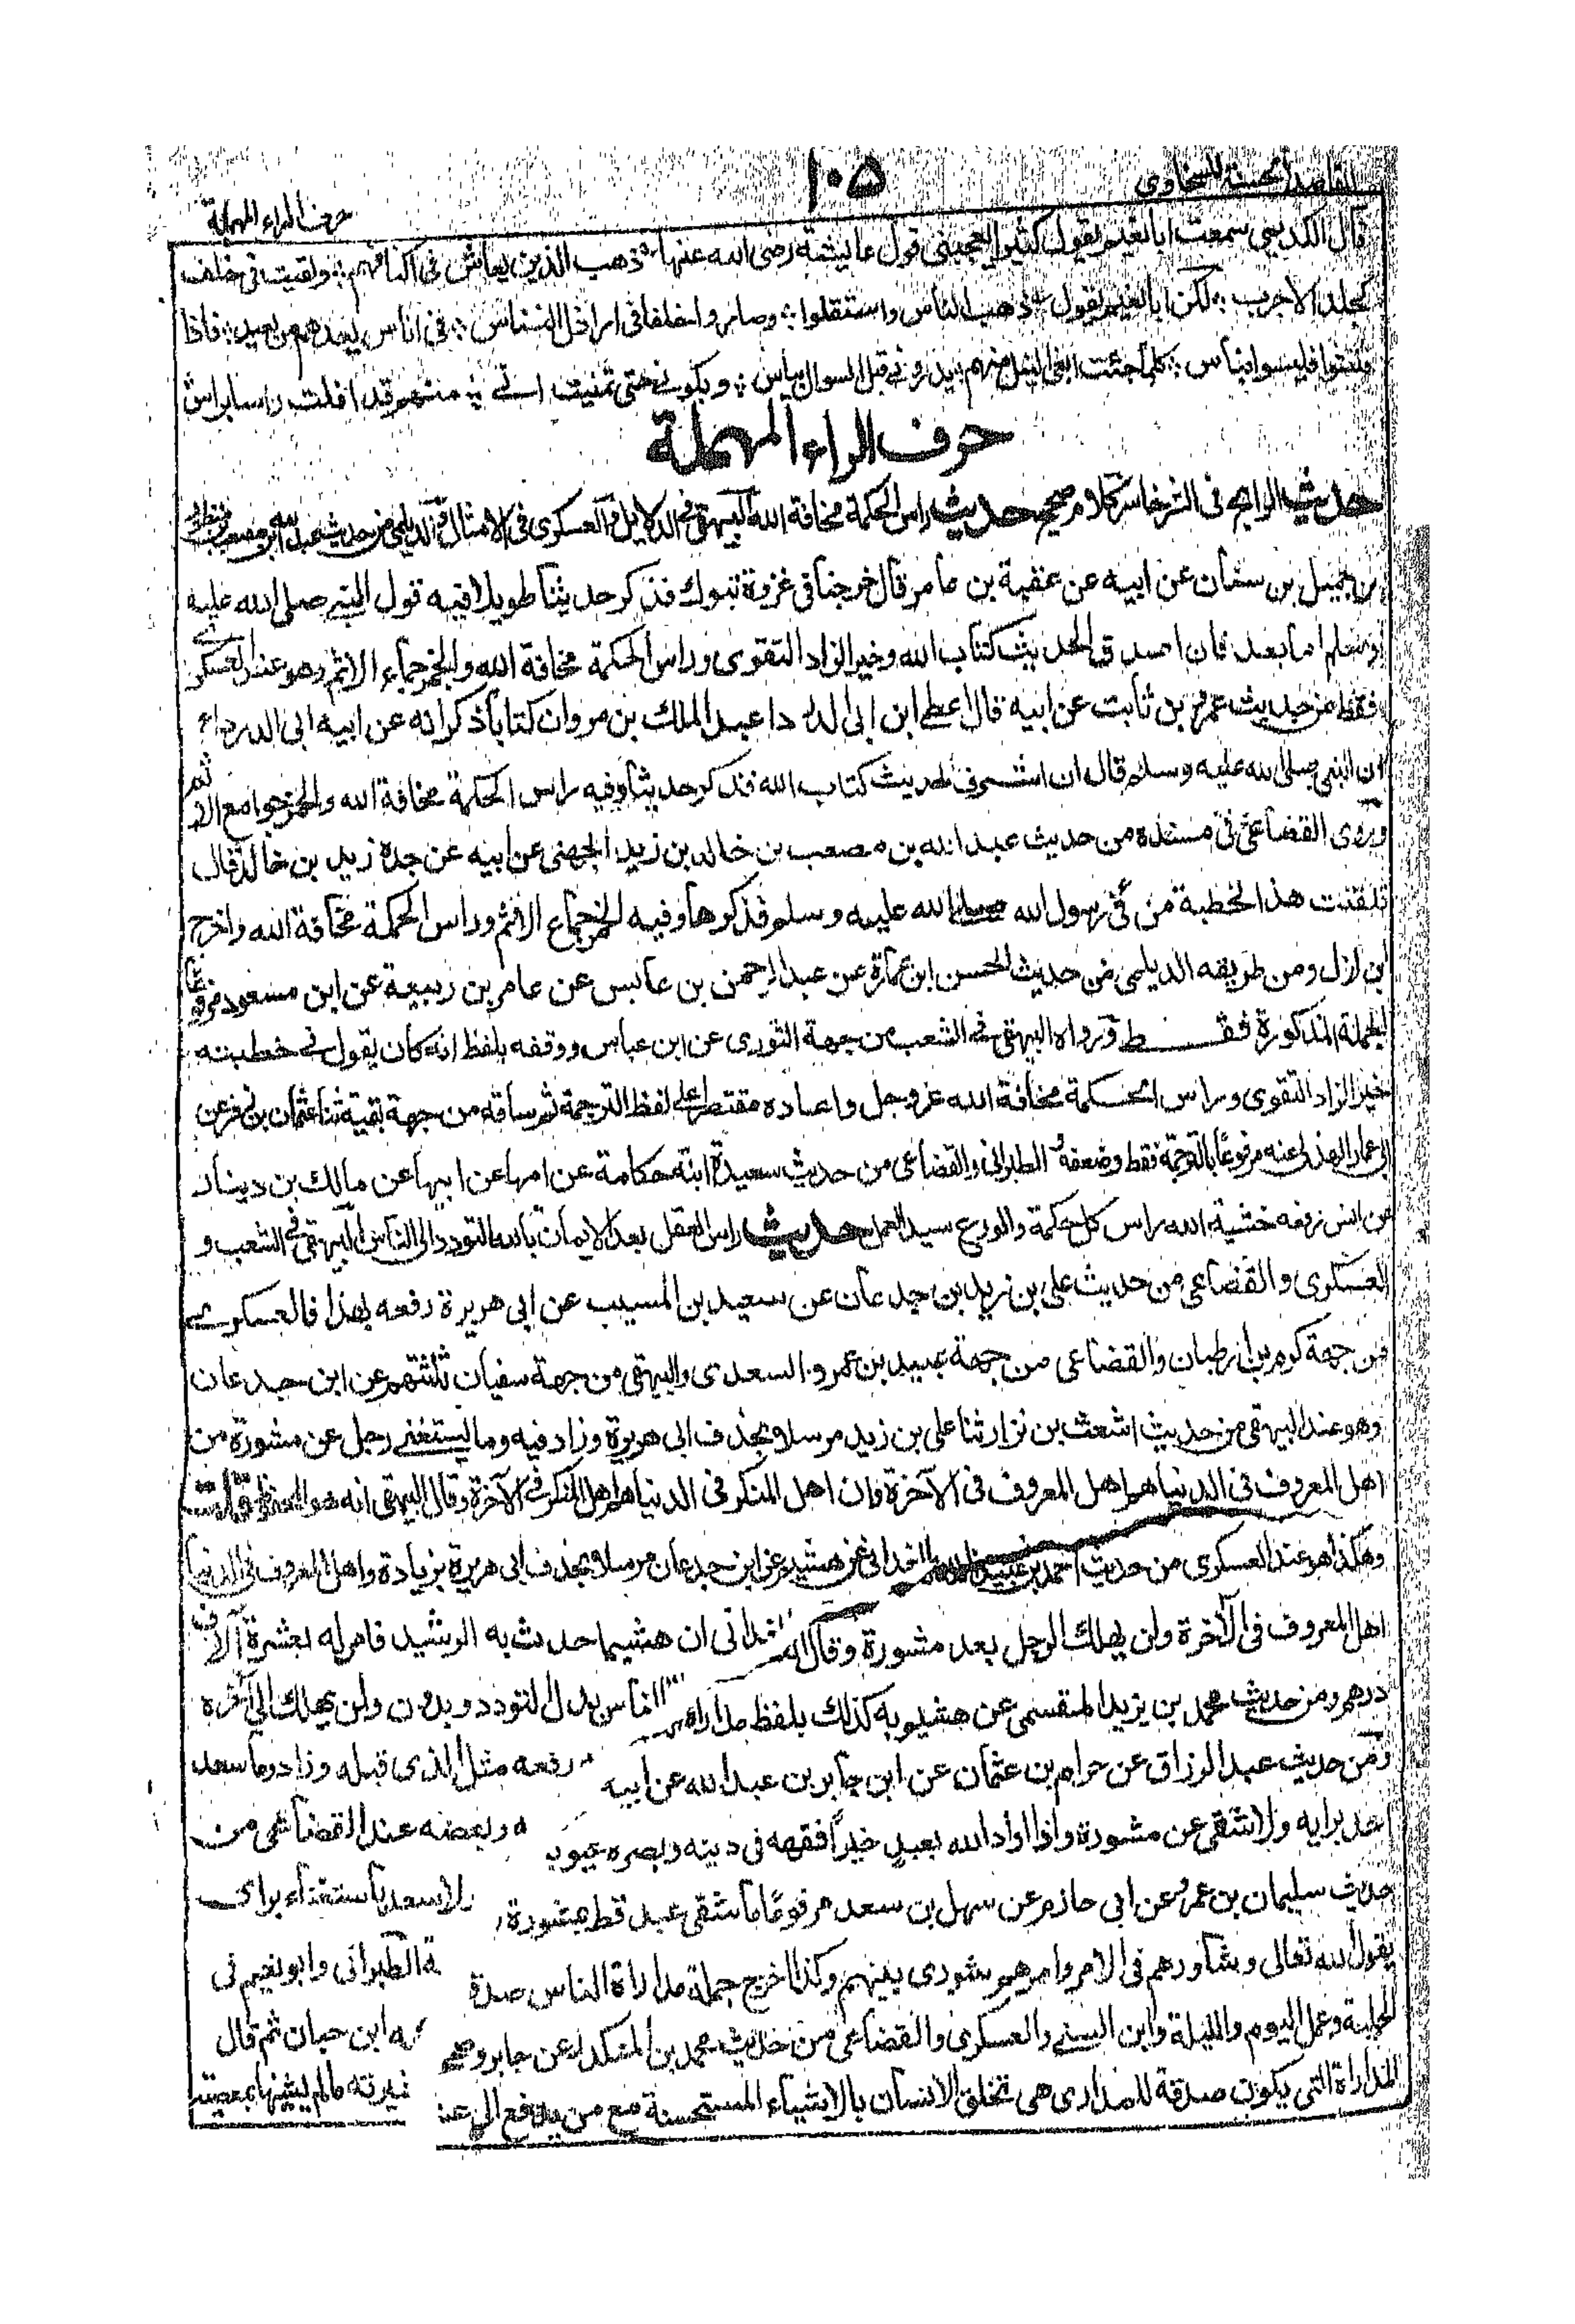 المقاصد الحسنة للسخاوى
١٠٥
حرف الراء المهملة
قال الكديمى سمعت ابا نعيم يقول كثيرا يعجبنى قول عايشة رضى الله عنها ذهب الذين يعاش فى اكنافهم ؛ وبقيت فى خلف
كجلد الاجرب ؛ لكن ابا نعيم يقول ؛ ذهب الناس واستقلوا ؛ وصاروا خلفا فى اراذل النسناس ؛ فى اناس يعدهم من بعيد ؛ فاذا
فتشوا فليسوا بناس ؛ كلما جئت ابغى النيل منهم بدرونى قبل السوال بياس ؛ وبكونى حتى تمنيت انى ؛ منهم قد افلت راسا براس
حرف الراء المهملة
حديث الرابح فى الشر خاسر كلام صحيح حديث راس الحكمة مخافة الله البيهقى فى الدلايل والعسكرى فى الامثال والديلمى من حديث عبد الله بن مصعب بن منظور
بن جميل بن سنان عن ابيه عن عقبة بن عامر قال خرجنا فى غزوة تبوك فذكر حديثا طويلا فيه قول النبى صلى الله عليه
وسلم اما بعد فان اصدق الحديث كتاب الله وخير الزاد التقوى وراس الحكمة مخافة الله والخمر جماع الاثم وهو عند العسكرى
فقط من حديث عمرو بن ثابت عن ابيه قال اعطى ابن ابى الدرداء عبد الملك بن مروان كتابا ذكر انه عن ابيه ابى الدرداء
ان النبى صلى الله عليه وسلم قال ان اشرف الحديث كتاب الله فذكر حديثا وفيه راس الحكمة مخافة الله والخمر جوامع الاثم
وروى القضاعى فى مسنده من حديث عبد الله بن مصعب بن خالد بن زيد الجهنى عن ابيه عن جده زيد بن خالد قال
تلقنت هذا الخطبة من فى رسول الله صلى الله عليه وسلم فذكرها وفيه الخمر جماع الاثم وراس الحكمة مخافة الله واخرج
ابن لال ومن طريقه الديلمى من حديث الحسن ابن عمارة عن عبد الرحمن بن عابس عن عامر بن ربيعة عن ابن مسعود مرفوعا
الجملة المذكورة فقط ورواه البيهقى فى الشعب من جهة الثورى عن ابن عباس ووقفه بلفظ انه كان يقول فى خطبته
خير الزاد التقوى وراس الحكمة مخافة الله عز وجل واعاده مقتصرا على لفظ الترجمة ثم ساقه من جهة بقية ثنا عثمان بن زفر عن
ابى عمار الهذلى عنه مرفوعا بالترجمة فقط وضعفه الطبرانى والقضاعى من حديث سعيدة ابنة حكامة عن امها عن ابيها عن مالك بن دينار
عن انس رفعه خشية الله راس كل حكمة والورع سيد العمل حديث راس العقل بعد الايمان بالله التودد الى الناس البيهقى فى الشعب و
العسكرى والقضاعى من حديث على بن زيد بن جدعان عن سعيد بن المسيب عن ابى هريرة رفعه بهذا فالعسكرى
من جهة كرم بن ارطبان والقضاعى من جهة عبيد بن عمرو السعدى والبيهقى من جهة سفيان ثلثتهم عن ابن جدعان
وهو عند البيهقى من حديث اشعث بن نزار ثنا على بن زيد مرسلا بحذف ابى هريرة وزاد فيه وما يستغنى رجل عن مشورة من
اهل المعروف فى الدنيا هم اهل المعروف فى الآخرة وان اهل المنكر فى الدنيا هم اهل المنكر فى الآخرة وقال البيهقى انه هو المحفوظ قلت
وهكذا هو عند العسكرى من حديث احمد بن عبيد الله الغدانى عن هشيم عن ابن جدعان مرسلا بحذف ابى هريرة بزيادة واهل المعروف فى الدنيا
اهل المعروف فى الآخرة ولن يهلك الرجل بعد مشورة وقال الغدانى ان هشيما حدث به الرشيد فامر له بعشرة آلاف
درهم ومن حديث محمد بن يزيد المنقسمى عن هشيم به كذلك بلفظ مداراة الناس بدل التودد وبدون ولن يهلك الى آخره
ومن حديث عبد الرزاق عن حرام بن عثمان عن ابن جابر بن عبد الله عن ابيه رفعه مثل الذى قبله وزاد وما سعد
احد برايه ولا شقى عن مشورة واذا اراد الله بعبد خيرا فقهه فى دينه وبصره عيوبه وبعضه عند القضاعى من
حديث سليمان بن عمرو عن ابى حازم عن سهل بن سعد مرفوعا ما شقى عبد قط بمشورة ولا سعد باستغناء براى
يقول الله تعالى وشاورهم فى الامر وامرهم شورى بينهم وكذا اخرج جملة مداراة الناس صدقة الطبرانى وابو نعيم فى
الحلية وعمل اليوم والليلة وابن السنى والعسكرى والقضاعى من حديث محمد بن المنكدر عن جابر وصححه ابن حبان ثم قال
المداراة التى يكون صدقة للمدارى هى تخلق الانسان بالاشياء المستحسنة مع من يدفع الى عشيرته مالم يشبها بمعصية